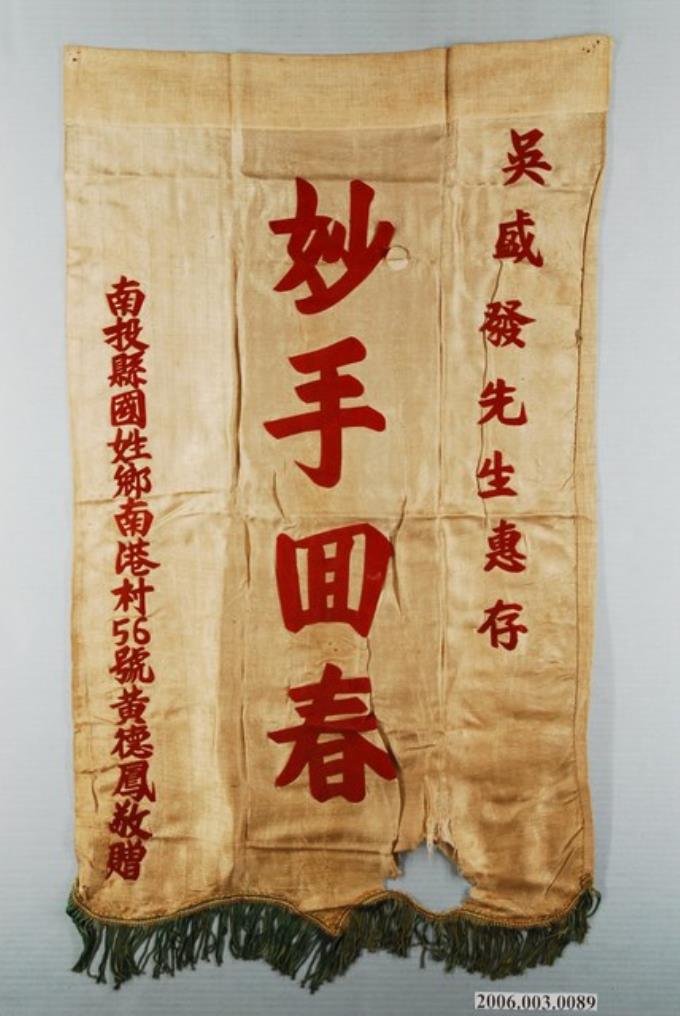 吳盛發先生惠存
妙手回春
南投縣國姓鄉南港村56號黃德鳳敬贈
2006.003.0089